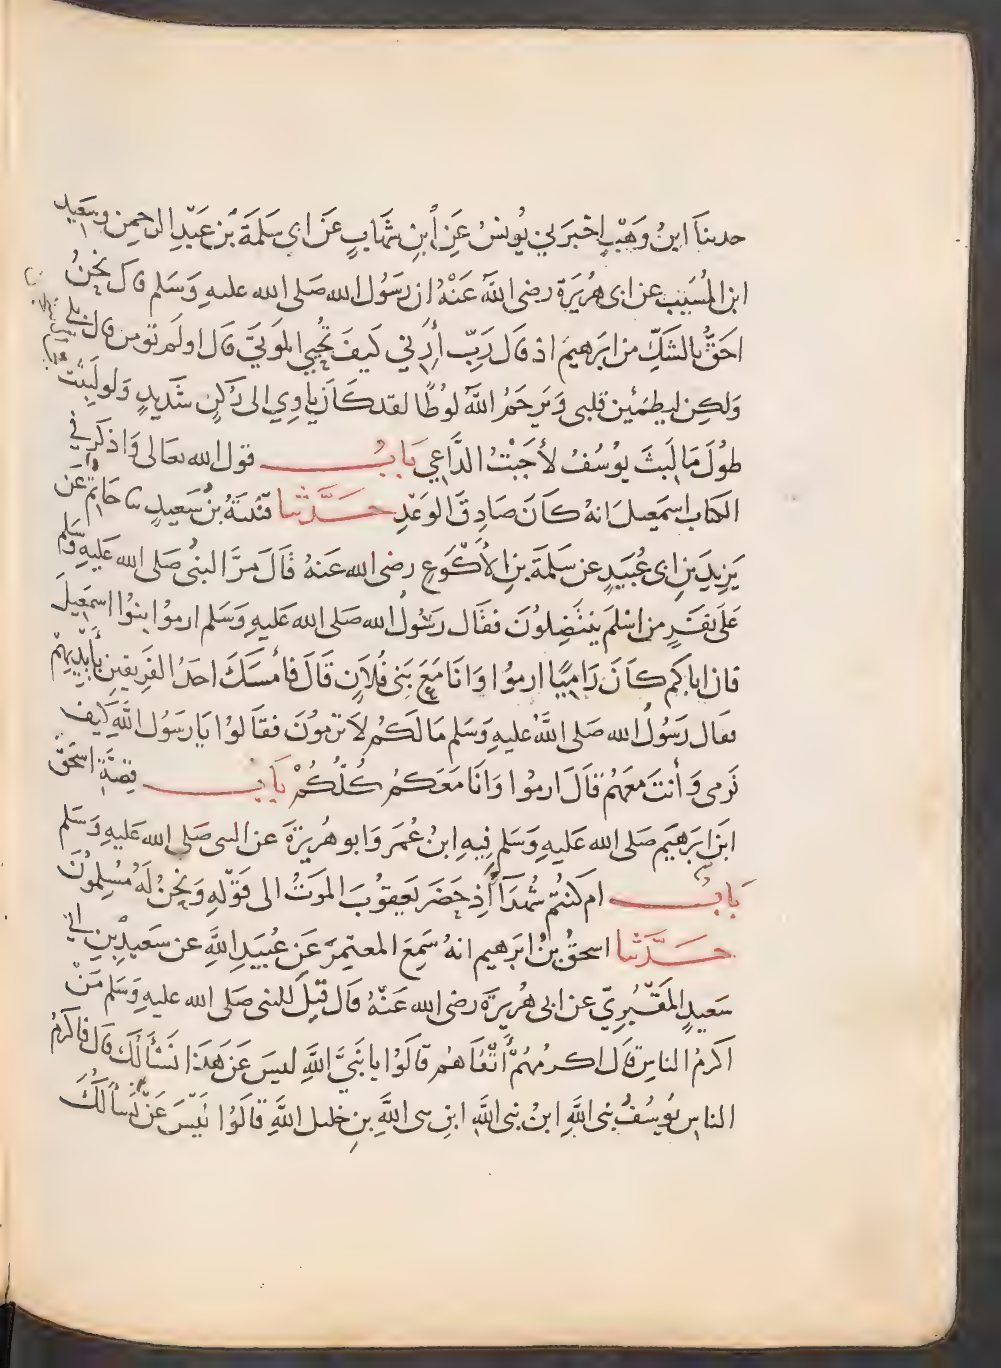 حدثنا ابنُ وَهْبٍ اخْبَرَني يُونسُ عَنِ ابنِ شِهَابٍ عَن ابى سَلمَةَ بن عَبدِ الرحمن وسَعِيدِ
ابن المُسَيبِ عن ابى هُرَيَرَةَ رضى اللّه عَنْهُ ان رَسُول الله صَلى الله عليهِ وَسَلم قال نحنُ
احَقُّ بالشَكِّ من ابرَهيمَ اذ قال رَبِّ أَرِني كيفَ تُحيِي الموتَى قال اولم تومن قال بلى
وَلكِن ليطمَئِن قلبى وَيَرحَمُ اللّهُ لوطًا لقد كَانَ ياوِي الى رُكنٍ شَديدٍ وَلو لبِثت
طولَ مَا لبَثَ يوُسُفُ لأجَبْتُ الدَّاعِي بَابُ قول الله تعالى وَاذكر في
الكتاب اسمَعِيلَ انهُ كَانَ صَادِقَ الوَعْدِ حَدَّثنا قتيبَةُ بنُ سَعِيدٍ نا حَاتِمٌ عَن
يَزِيدَ بن ابى عُبَيدٍ عن سَلمَةَ بن الأكْوَعِ رضى الله عَنهُ قَالَ مَرَّ النبىُّ صَلى الله عَليهِ وَسَلم
عَلَى نفَرٍ من اسْلمَ يَنتَضِلونَ فقَال رَسُولُ الله صَلى الله عَليهِ وَسَلم ارموا بنوا اسمَعِيلَ
فان اباكم كَانَ رَامِيًا ارموُا وَانَا مَعَ بَنى فُلَانٍ قَالَ فَأَمسَكَ احدُ الفَرِيقينِ بأيْديهِمْ
فقال رَسُولُ الله صَلى اللّهُ عليهِ وَسَلم مَا لَكُم لاَ ترمُونَ فقَالوُا يَا رَسُول اللّهِ كيف
نَرمى وَأنتَ مَعَهُم قَالَ ارموُا وَانَا مَعَكمُ كُلّكُمْ بَابُ قِصَّة اسحَقَ
ابنِ ابرَهِيمَ صَلى الله عَليهِ وَسَلم فِيهِ ابنُ عُمَرَ وَابو هُرَيرَةَ عن النبى صَلى الله عَليهِ وَسَلم
بَابُ ام كنتم شُهَدَآَ إذ حَضَرَ يَعقوبَ الموَتُ الى قوْلهِ وَنحنُ لهُ مُسْلِمُونَ
حَدَّثنا اسحقُ بنُ ابرَهيم انهُ سَمِعَ المعتمِرَ عَن عُبَيدِ اللّهِ عن سَعِيدِ بنِ ابي
سَعِيدٍ المَقبُرِيّ عن ابى هُرَيرَةَ رضى الله عَنْهُ قال قيلَ للنبى صَلى الله عليهِ وَسَلم مَنْ
اكرمُ الناسِ قَال اكرمُهُم أَتْقَاهُم قَالوُا يا نَبيَّ اللّهِ ليسَ عَن هَذا نَسْأَلكَ قال فاكرمُ
الناسِ يوُسُفُ نبى اللّهِ ابنُ نبى اللّهِ ابنِ نبى اللّهِ بنِ خليل اللّهِ قَالوُا لَيْسَ عَن هَذا نَسألُكَ